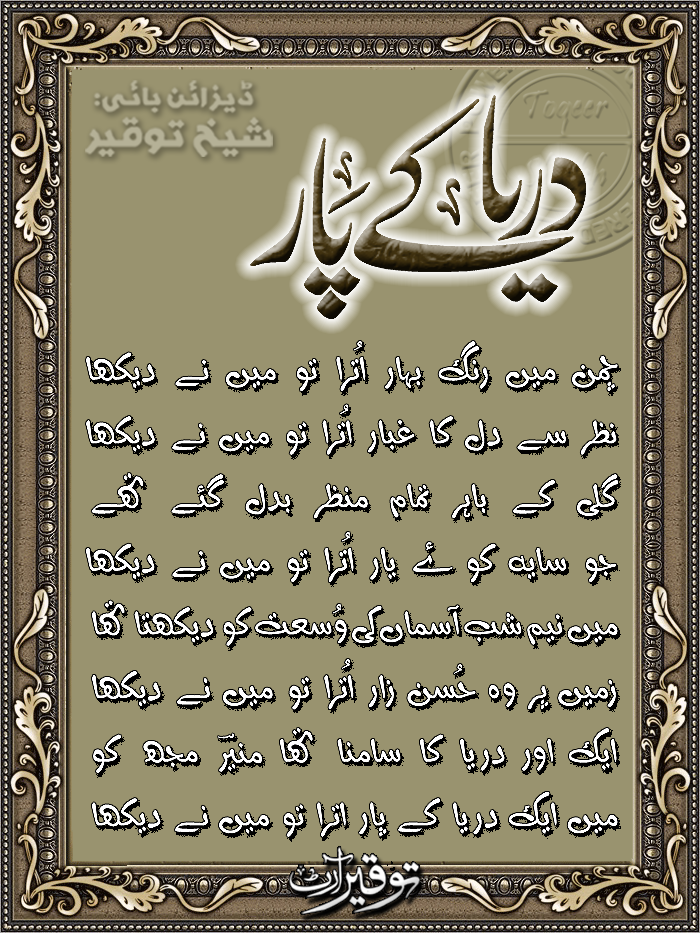 ڈیزائن بائی:
شیخ توقیر
Toqeer
دریا کے پار
چمن میں رنگ بہار اُترا تو میں نے دیکھا
نظر سے دل کا غبار اُترا تو میں نے دیکھا
گلی کے باہر تمام منظر بدل گئے تھے
جو سایہ کوئے یار اُترا تو میں نے دیکھا
میں نیم شب آسماں کی وُسعت کو دیکھتا تھا
زمیں پر وہ حُسن زار اُترا تو میں نے دیکھا
ایک اور دریا کا سامنا تھا منیرؔ مجھ کو
میں ایک دریا کے پار اترا تو میں نے دیکھا
توقیر آرٹ